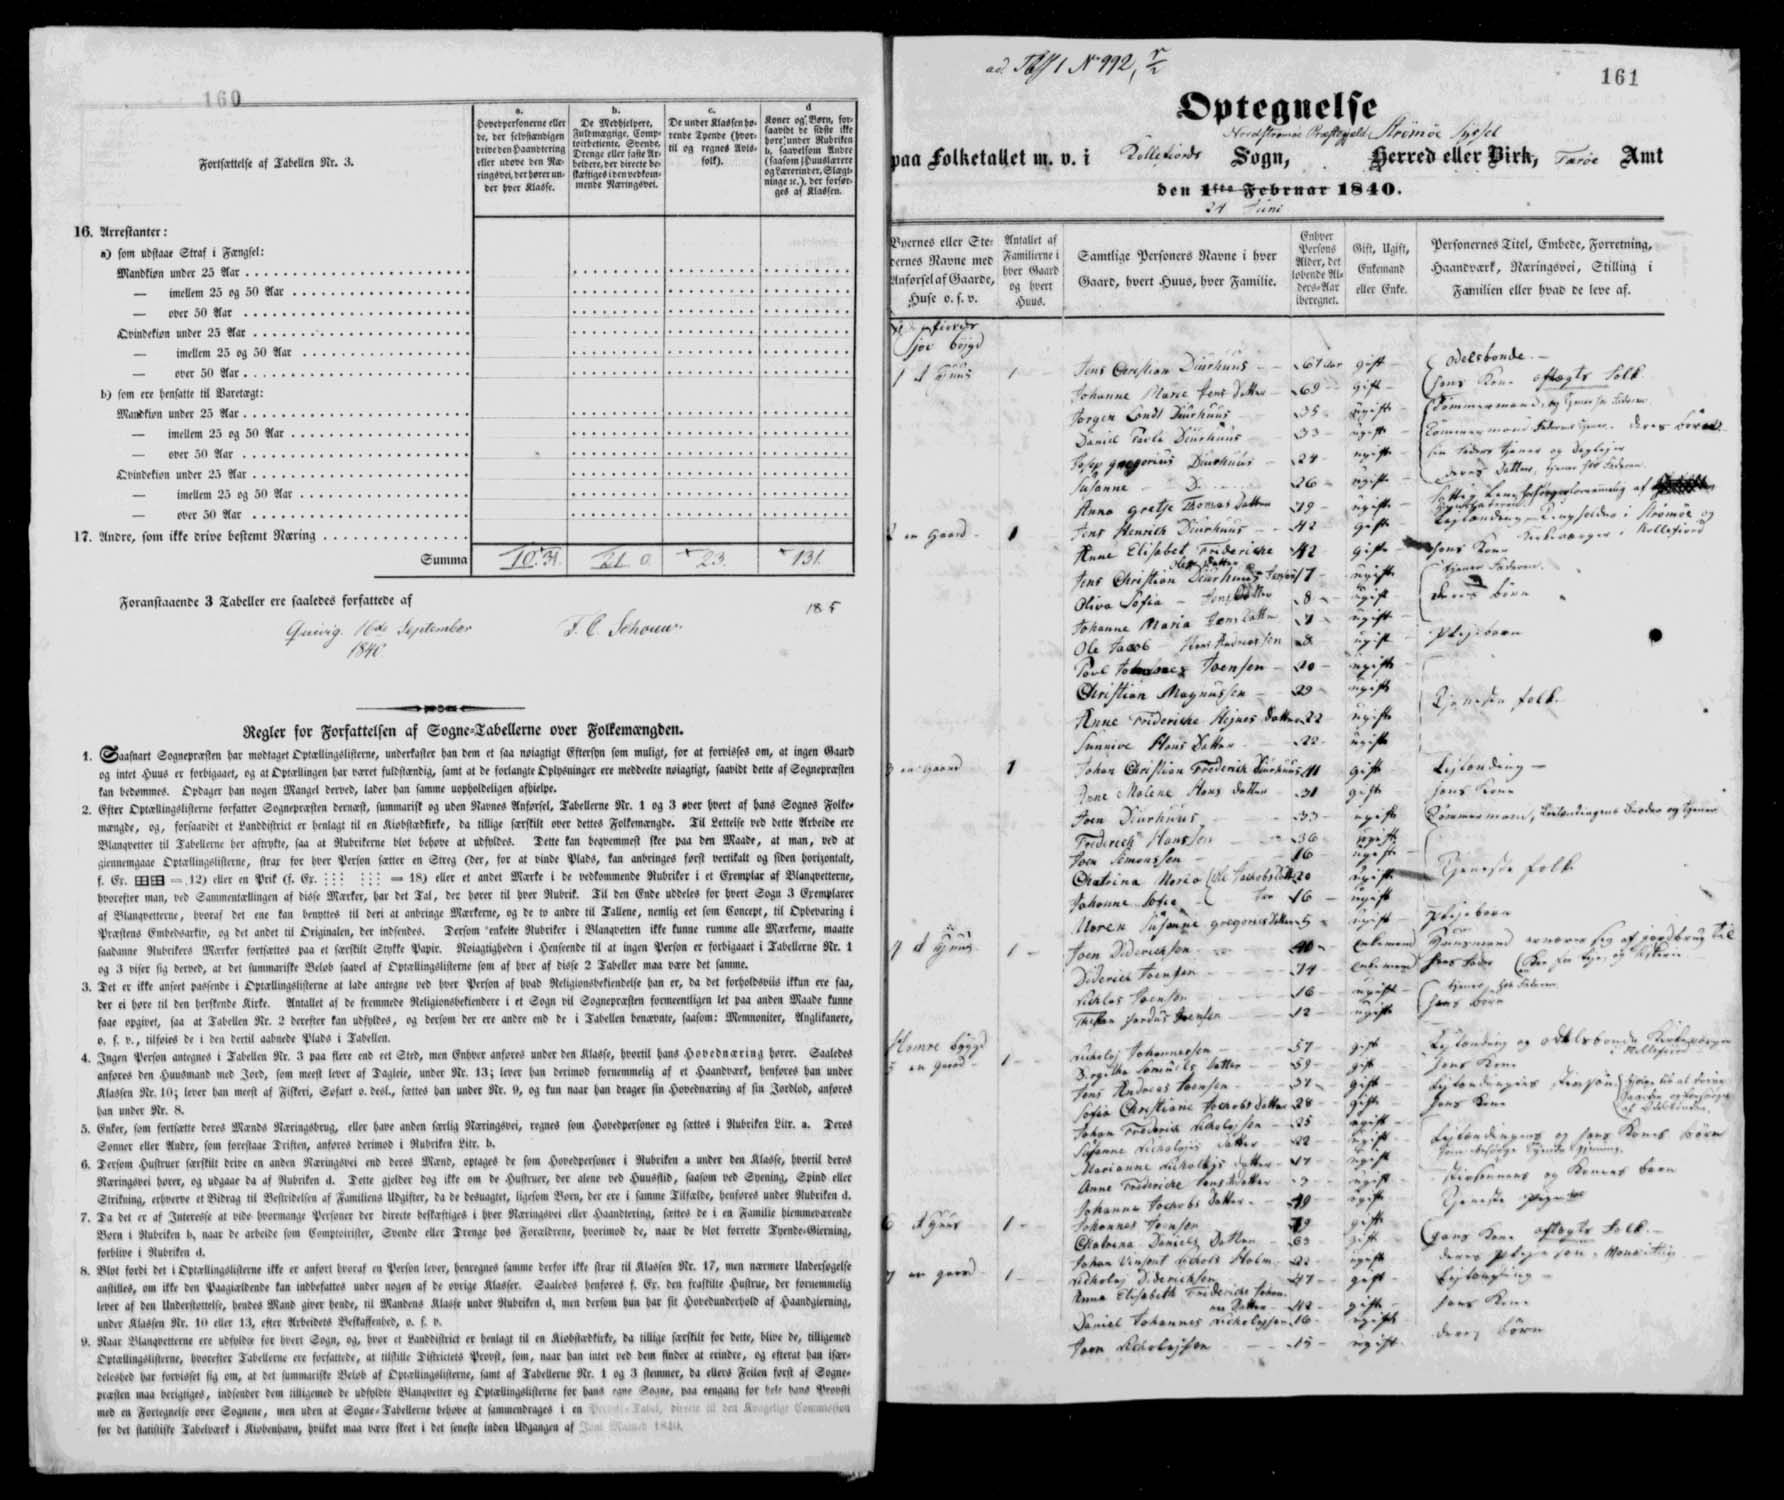 160
Fortsættelse af Tabellen Nr. 3.
a.
Hovedpersonerne eller
de, der selvstændigen
drive den Haandtering
eller udøve den Næ-
ringsvei, der hører un-
der hver Klasse.
b.
De Medhjelpere,
Fuldmægtige, Comp-
toirbetiente, Svende,
Drenge eller faste Ar-
beidere, der directe be-
skæftiges i den vedkom-
mende Næringsvei.
c.
De under Klassen hø-
rende Tyende (hvor-
til og regnes Avls-
folk).
d
Koner og Børn, for-
saavidt de sidste ikke
høre under Rubriken
b, saavelsom Andre
(saasom Huuslærere
og Lærerinder, Slægt-
ninge ꝛc.), der forsør-
ges af Klassen.
16. Arrestanter:
a) som udstaae Straf i Fængsel:
Mandkiøn under 25 Aar
— imellem 25 og 50 Aar
— over 50 Aar
Qvindekiøn under 25 Aar
— imellem 25 og 50 Aar
— over 50 Aar
b) som ere hensatte til Varetægt:
Mandkiøn under 25 Aar
— imellem 25 og 50 Aar
— over 50 Aar
Qvindekiøn under 25 Aar
— imellem 25 og 50 Aar
— over 50 Aar
17. Andre, som ikke drive bestemt Næring
Summa 23. 131.
185
Foranstaaende 3 Tabeller ere saaledes forfattede af
Qvivig 16de September
1840
Regler for Forfattelsen af Sogne-Tabellerne over Folkemængden.
1. Saasnart Sognepræsten har modtaget Optællingslisterne, underkaster han dem et saa nøiagtigt Eftersyn som muligt, for at forvisses om, at ingen Gaard
og intet Huus er forbigaaet, og at Optællingen har været fuldstændig, samt at de forlangte Oplysninger ere meddeelte nøiagtigt, saavidt dette af Sognepræsten
kan bedømmes. Opdager han nogen Mangel derved, lader han samme uopholdeligen afhielpe.
2. Efter Optællingslisterne forfatter Sognepræsten dernæst, summarisk og uden Navnes Anførsel, Tabellerne Nr. 1 og 3 over hvert af hans Sognes Folke-
mængde, og, forsaavidt et Landdistrict er henlagt til en Kiøbstædkirke, da tillige særskilt over dettes Folkemængde. Til Lettelse ved dette Arbeide ere
Blanqvetter til Tabellerne her aftrykte, saa at Rubrikerne blot behøve at udfyldes. Dette kan beqvemmest skee paa den Maade, at man, ved at
giennemgaae Optællingslisterne, strax for hver Person sætter en Streg (der, for at vinde Plads, kan anbringes først vertikalt og siden horizontalt,
f. Ex. = 12) eller en Prik (f. Ex. = 18) eller et andet Mærke i de vedkommende Rubriker i et Exemplar af Blanqvetterne,
hvorefter man, ved Sammentællingen af disse Mærker, har det Tal, der hører til hver Rubrik. Til den Ende uddeles for hvert Sogn 3 Exemplarer
af Blanqvetterne, hvoraf det ene kan benyttes til deri at anbringe Mærkerne, og de to andre til Tallene, nemlig eet som Concept, til Opbevaring i
Præstens Embedsarkiv, og det andet til Originalen, der indsendes. Dersom enkelte Rubriker i Blanqvetten ikke kunne rumme alle Mærkerne, maatte
saadanne Rubrikers Mærker fortsættes paa et særskilt Stykke Papir. Nøiagtigheden i Henseende til at ingen Person er forbigaaet i Tabellerne Nr. 1
og 3 viser sig derved, at det summariske Beløb saavel af Optællingslisterne som af hver af disse 2 Tabeller maa være det samme.
3. Det er ikke anseet passende i Optællingslisterne at lade antegne ved hver Person af hvad Religionsbekiendelse han er, da det forholdsviis ikkun ere faa,
der ei høre til den herskende Kirke. Antallet af de fremmede Religionsbekiendere i et Sogn vil Sognepræsten formeentligen let paa anden Maade kunne
faae opgivet, saa at Tabellen Nr. 2 derefter kan udfyldes, og dersom der ere andre end de i Tabellen benævnte, saasom: Memnoniter, Anglikanere,
o. s. v., tilføies de i den dertil aabnede Plads i Tabellen.
4. Ingen Person antegnes i Tabellen Nr. 3 paa flere end eet Sted, men Enhver anføres under den Klasse, hvortil hans Hovednæring hører. Saaledes
anføres den Huusmand med Jord, som meest lever af Dagleie, under Nr. 13; lever han derimod fornemmelig af et Haandværk, henføres han under
Klassen Nr. 10; lever han meest af Fiskeri, Søfart o. desl., sættes han under Nr. 9, og kun naar han drager sin Hovednæring af sin Jordlod, anføres
han under Nr. 8.
5. Enker, som fortsætte deres Mænds Næringsbrug, eller have anden særlig Næringsvei, regnes som Hovedpersoner og sættes i Rubriken Litr. a. Deres
Sønner eller Andre, som forestaae Driften, anføres derimod i Rubriken Litr. b.
6. Dersom Hustruer særskilt drive en anden Næringsvei end deres Mænd, optages de som Hovedpersoner i Rubriken a under den Klasse, hvortil deres
Næringsvei hører, og udgaae da af Rubriken d. Dette gjelder dog ikke om de Hustruer, der alene ved Huusflid, saasom ved Syening, Spind eller
Strikning, erhverve et Bidrag til Bestridelsen af Familiens Udgifter, da de desuagtet, ligesom Børn, der ere i samme Tilfælde, henføres under Rubriken d.
7. Da det er af Interesse at vide hvormange Personer der directe beskæftiges i hver Næringsvei eller Haandtering, sættes de i en Familie hiemmeværende
Børn i Rubriken b, naar de arbeide som Comptoirister, Svende eller Drenge hos Forældrene, hvorimod de, naar de blot forrette Tyende-Gierning,
forblive i Rubriken d.
8. Blot fordi det i Optællingslisterne ikke er anført hvoraf en Person lever, henregnes samme derfor ikke strax til Klassen Nr. 17, men nærmere Undersøgelse
anstilles, om ikke den Paagjældende kan indbefattes under nogen af de øvrige Klasser. Saaledes henføres f. Ex. den fraskilte Hustrue, der fornemmelig
lever af den Understøttelse, hendes Mand giver hende, til Mandens Klasse under Rubriken d, men dersom hun har sit Hovedunderhold af Haandgierning,
under Klassen Nr. 10 eller 13, efter Arbeidets Beskaffenhed, o. s. v.
9. Naar Blanqvetterne ere udfyldte for hvert Sogn, og, hvor et Landdistrict er henlagt til en Kiøbstædkirke, da tillige særskilt for dette, blive de, tilligemed
Optællingslisterne, hvorefter Tabellerne ere forfattede, at tilstille Districtets Provst, som, naar han intet ved dem finder at erindre, og efterat han især-
deleshed har forvisset sig om, at det summariske Beløb af Optællingslisterne, samt af Tabellerne Nr. 1 og 3 stemmer, da ellers Feilen først af Sogne-
præsten maa berigtiges, indsender dem tilligemed de udfyldte Blanqvetter og Optællingslisterne for hans egne Sogne, paa eengang for hele hans Provsti
med en Fortegnelse over Sognene, men uden at Sogne-Tabellerne behøve at sammendrages i en Provsti-Tabel, directe til den Kongelige Commission
for det statistiske Tabelværk i Kiøbenhavn, hvilket maa være skeet i det seneste inden Udgangen af Juni Maaned 1840.
161
No 992,
Optegnelse
Nordstrømøe Præstegjeld Strømøe Syssel
paa Folketallet m. v. i Kollefiords Sogn, Herred eller Birk, Færøe Amt
den 1ste Februar 1840.
24 Juni
Byernes eller Ste-
dernes Navne med
Anførsel af Gaarde,
Huse o. s. v.
Antallet af
Familierne i
hver Gaard
og hvert
Huus.
Samtlige Personers Navne i hver
Gaard, hvert Huus, hver Familie.
Enhver
Persons
Alder, det
løbende Al-
ders-Aar
iberegnet.
Gift, Ugift,
Enkemand
eller Enke.
Personernes Titel, Embede, Forretning,
Haandværk, Næringsvei, Stilling i
Familien eller hvad de leve af.
1 et Huus 1 Jens Christian Diurhuus 67 Aar gift Odelsbonde
Johanne Marie Jens Datter 69 gift hans Kone aftægts Folk
Jørgen Londt Diurhuus 35 ugift Tømmermand, og tjener for Faderen
Daniel Povle Diurhuus 33 ugift Tømmermand deres børn
Josep gregorius Diurhuus 24 ugift
Susanne D 26 ugift deres Datter, tjener for Faderen
Anna gretje Thomas Datter 79 ugift
2 en Gaard 1 Jens Henrich Diurhuus 42 gift
Anne Elisabet Frideriche 42 gift hans Kone
Jens Christian Diurhuus Jensen 17 ugift tjener Faderen
Oliva Sofia Jens Datter 8 ugift deres børn
Johanne Maria Jens Datter ugift
Ole Jacob Hans Andreassen ugift Plejebarn
Povl Joensen 20 ugift
Christian Magnussen 29 ugift Tjeneste folk
Anne Friderike Datter 22 ugift
Sunnive Hans Datter 22 ugift
3 en Gaard 1 Johan Christian Frederik Diurhuus 41 gift Lejlænding
Anne Malene Hans Datter 31 gift hans Kone
Joen Diurhuus 33 ugift Tømmermand,
Frederich Hanssen 36 ugift
Joen Simonssen 16 ugift
Chatrina Maria Ole Jachobs Datter 20 ugift Tjeneste folk
Johanne Sofie 16 ugift
Maren Susanne gregorius Datter 5 ugift Plejebarn
4 et Huus 1 Joen Diderichsen 40 Enkemand Huusmand ernærer sig af jordbrug
Diderich Joensen 74 Enkemand hans Fader
Joensen 16 ugift
Joensen 12 ugift hans børn
5 en gaard 1 Johannessen 57 gift
Datter 59 gift hans Kone
Jens Andreas Joensen 31 gift
Sofia Christiane Jachobs Datter 28 gift hans Kone
Johan Frederich 25 ugift
Susanne Datter 22 ugift
Marianne Datter 17 ugift
Anne Frideriche Jens Datter 3 ugift
Johanne Jachobs Datter 19 ugift
6 et Huus 1 Johannes Joensen 79 gift
Chatrina Daniels Datter 63 gift hans Kone aftægts Folk
Johan Vinsent Holm 22 ugift deres Pleje søn
7 en gaard 1 Diderichsen 47 gift Lejlænding
Anna Elisabeth Frideriche
Datter 42 gift hans Kone
Daniel Johannes 16 ugift deres børn
Joen 15 ugift